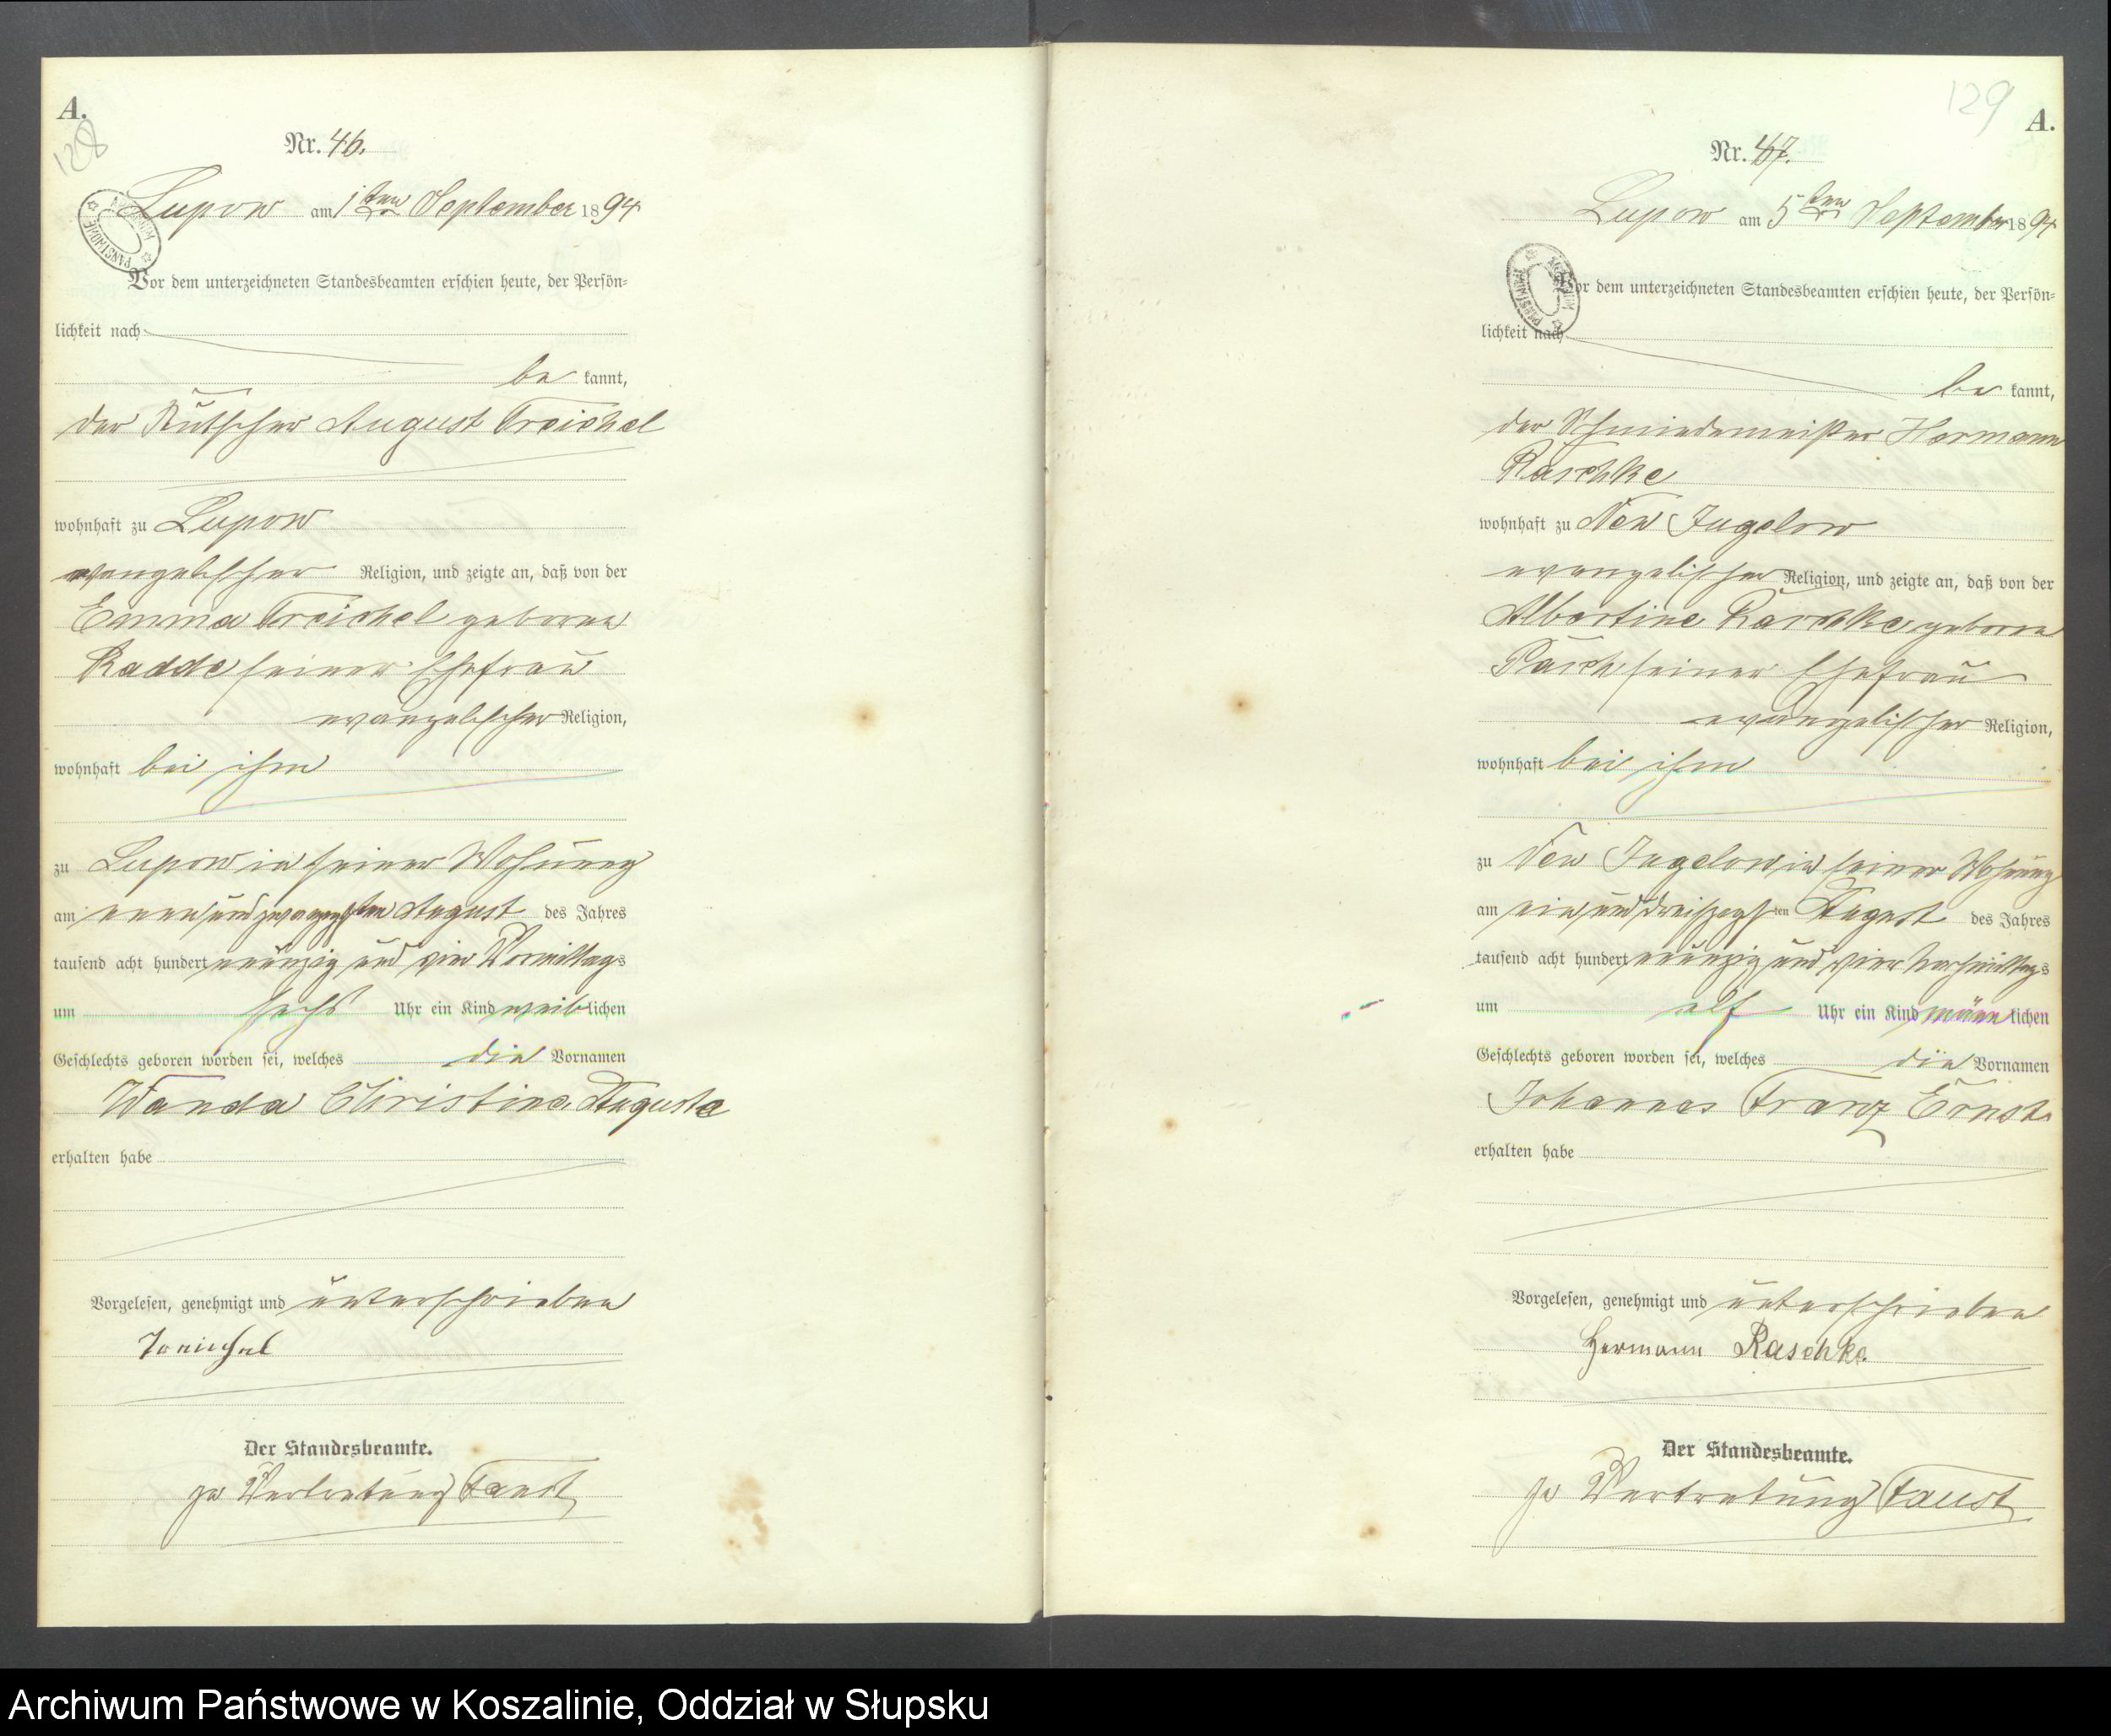 A.
128
Nr. 46.
Lupow am 1ten September 1894
Vor dem unterzeichneten Standesbeamten erschien heute, der Persön=
lichkeit nach
be kannt,
der Kutscher August Treichel
wohnhaft zu Lupow
evangelischer Religion, und zeigte an, daß von der
Emma Treichel geborene
Radde seiner Ehefrau
evangelischer Religion,
wohnhaft bei ihm
zu Lupow in seiner Wohnung
am neunundzwanzigsten August des Jahres
tausend acht hundert neunzig und vier Vormittags
um sechs Uhr ein Kind weiblichen
Geschlechts geboren worden sei, welches die Vornamen
Wanda Christine Auguste
erhalten habe
Vorgelesen, genehmigt und unterschrieben
Treichel
Der Standesbeamte.
In Vertretung Faust
129
A.
Nr. 47.
Lupow am 5ten September 1894
Vor dem unterzeichneten Standesbeamten erschien heute, der Persön=
lichkeit nach
be kannt,
der Schmiedemeister Hermann
Raschke
wohnhaft zu Neu Jugelow
evangelischer Religion, und zeigte an, daß von der
Albertine Raschke geborene
Pasch seiner Ehefrau
evangelischer Religion,
wohnhaft bei ihm
zu Neu Jugelow in seiner Wohnung
am einunddreißigsten August des Jahres
tausend acht hundert neunzig und vier Nachmittags
um elf Uhr ein Kind männlichen
Geschlechts geboren worden sei, welches die Vornamen
Johannes Franz Ernst
erhalten habe
Vorgelesen, genehmigt und unterschrieben
Hermann Raschke.
Der Standesbeamte.
In Vertretung Faust
Archiwum Państwowe w Koszalinie, Oddział w Słupsku